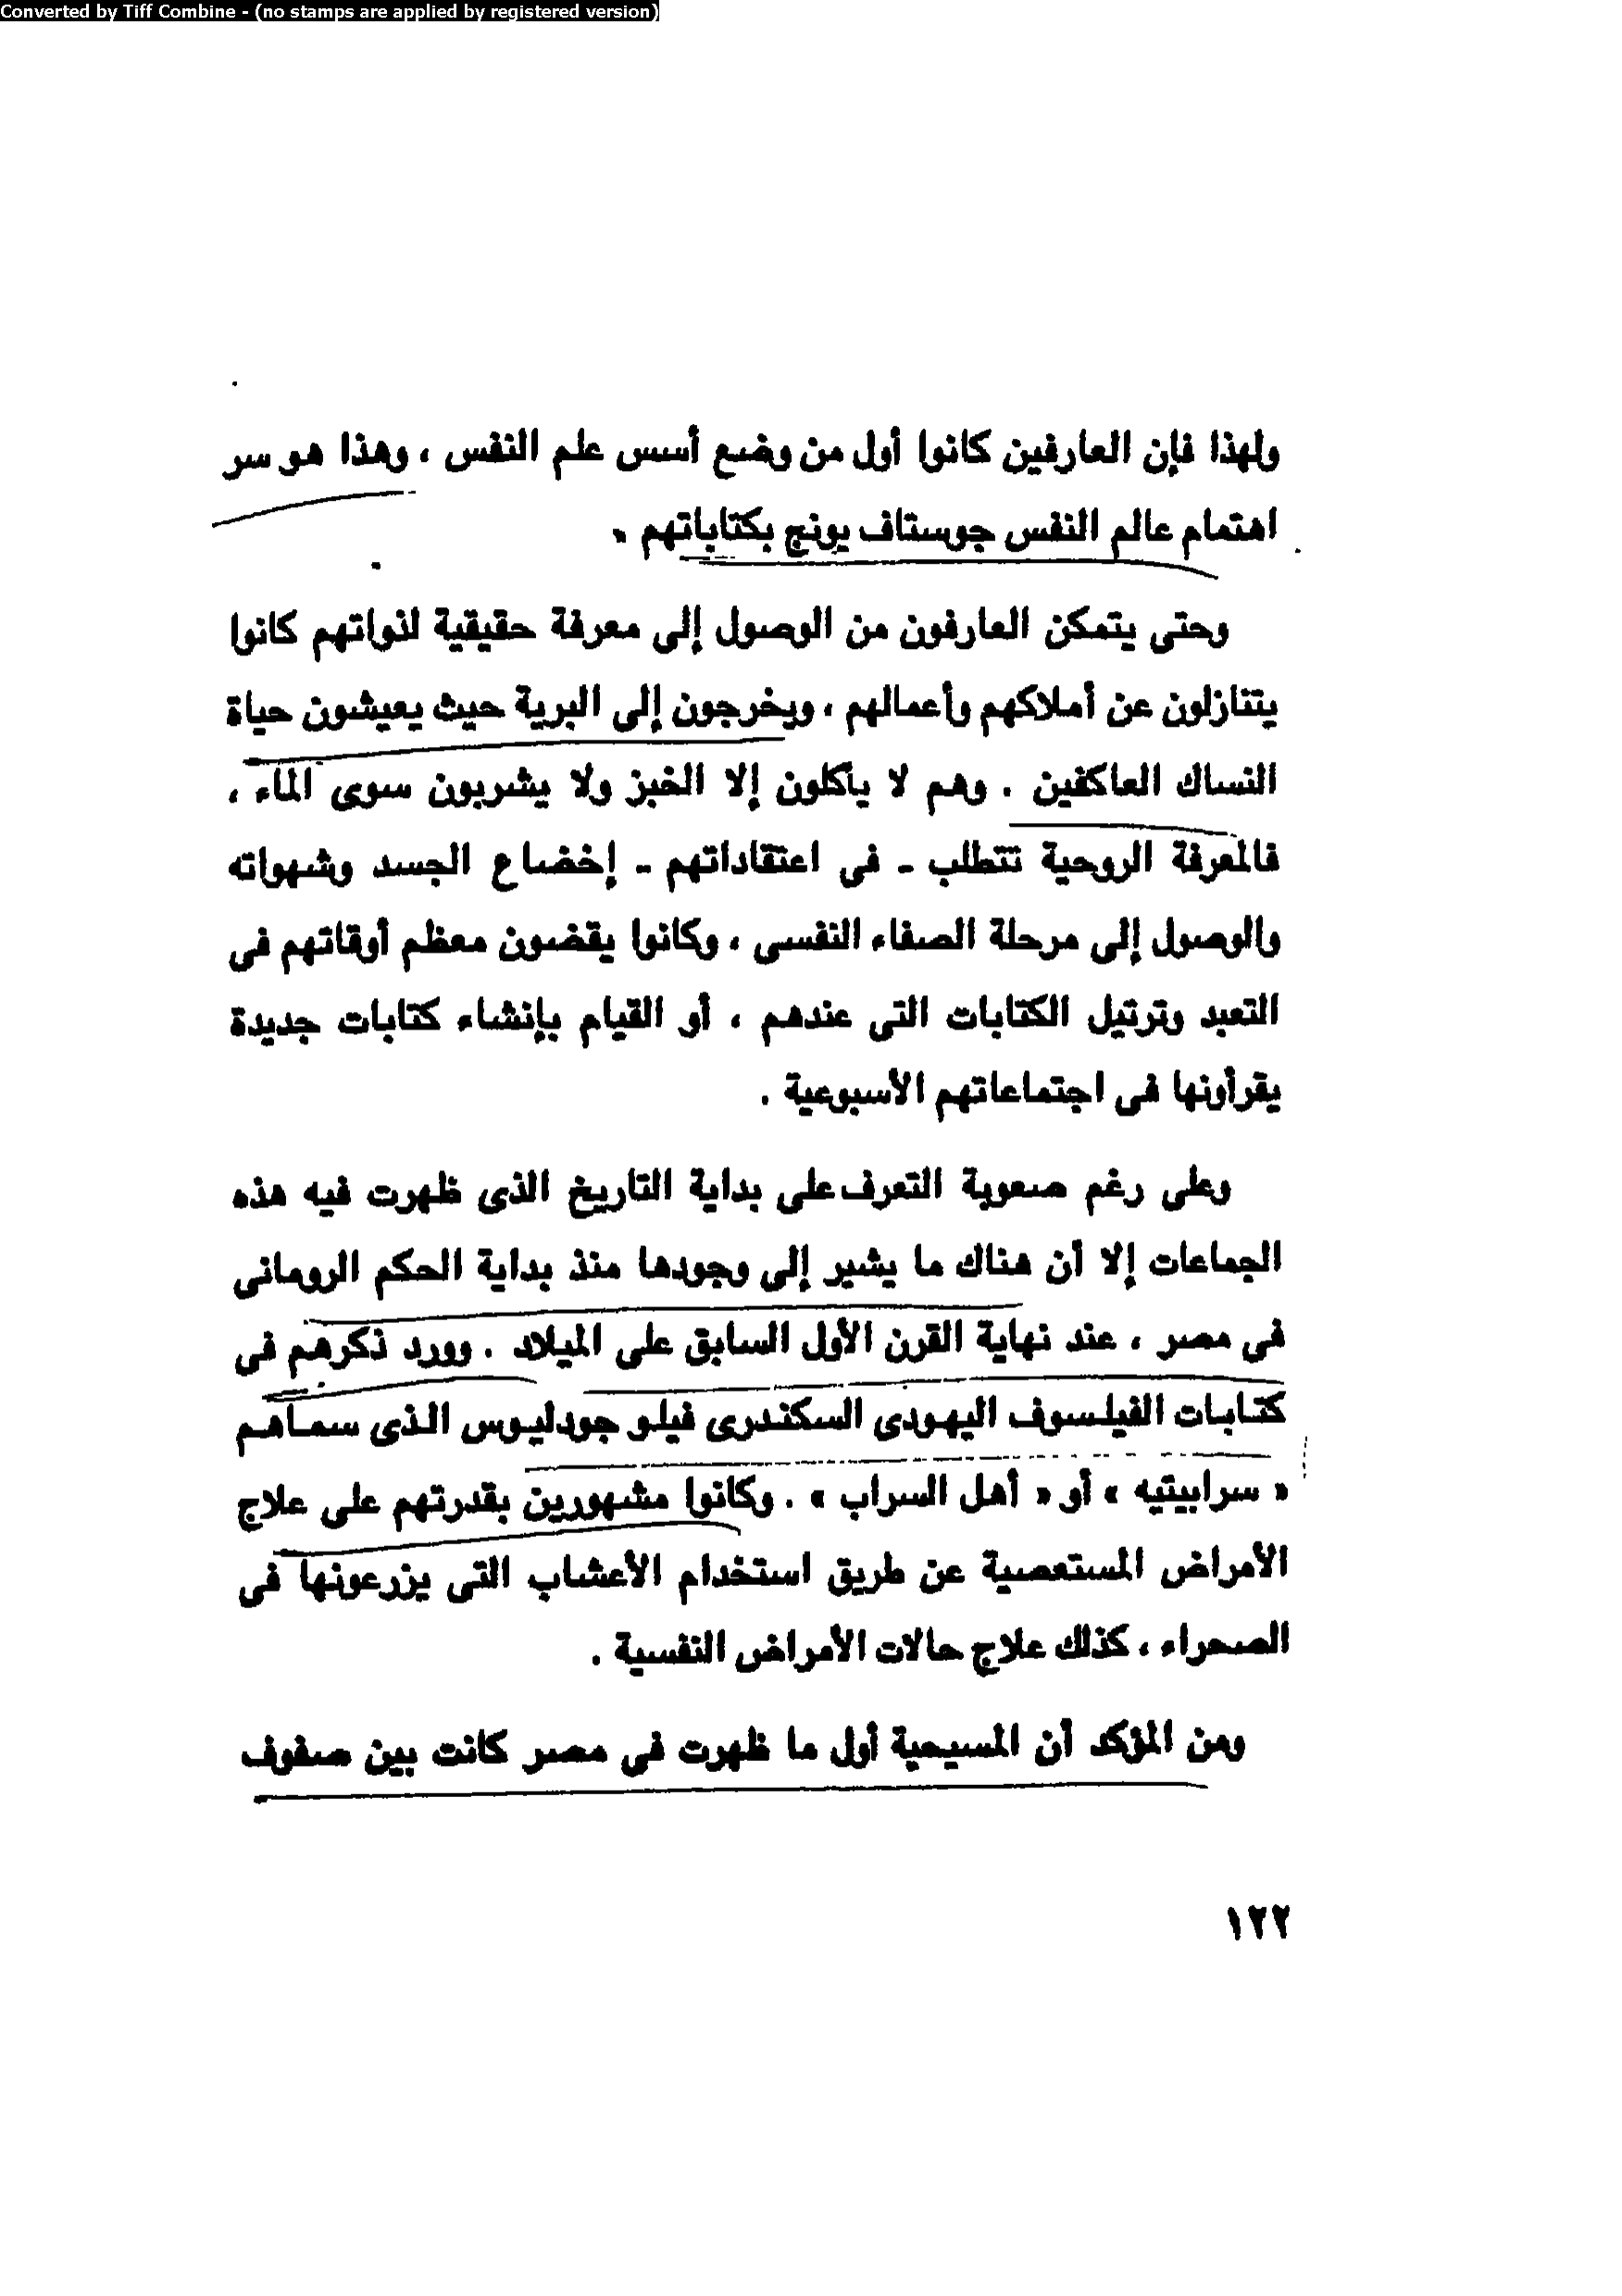 Converted by Tiff Combine - (no stamps are applied by registered version)
ولهذا فإن العارفين كانوا أول من وضع أسس علم النفس ، وهذا هو سر
اهتمام عالم النفس جوستاف يونج بكتاباتهم .
وحتى يتمكن العارفون من الوصول إلى معرفة حقيقية لذواتهم كانوا
يتنازلون عن أملاكهم وأعمالهم ، ويخرجون إلى البرية حيث يعيشون حياة
النساك العاكفين . وهم لا يأكلون إلا الخبز ولا يشربون سوى الماء ،
فالمعرفة الروحية تتطلب - فى اعتقاداتهم - إخضاع الجسد وشهواته
والوصول إلى مرحلة الصفاء النفسى ، وكانوا يقضون معظم أوقاتهم فى
التعبد وترتيل الكتابات التى عندهم ، أو القيام بإنشاء كتابات جديدة
يقرأونها فى اجتماعاتهم الأسبوعية .
وعلى رغم صعوبة التعرف على بداية التاريخ الذى ظهرت فيه هذه
الجماعات إلا أن هناك ما يشير إلى وجودها منذ بداية الحكم الرومانى
فى مصر ، عند نهاية القرن الأول السابق على الميلاد . وورد ذكرهم فى
كتابات الفيلسوف اليهودى السكندرى فيلو جودليوس الذى سماهم
« سرابيتيه » أو « أهل السراب » . وكانوا مشهورين بقدرتهم على علاج
الأمراض المستعصية عن طريق استخدام الأعشاب التى يزرعونها فى
الصحراء ، كذلك علاج حالات الأمراض النفسية .
ومن المؤكد أن المسيحية أول ما ظهرت فى مصر كانت بين صفوف
١٢٢